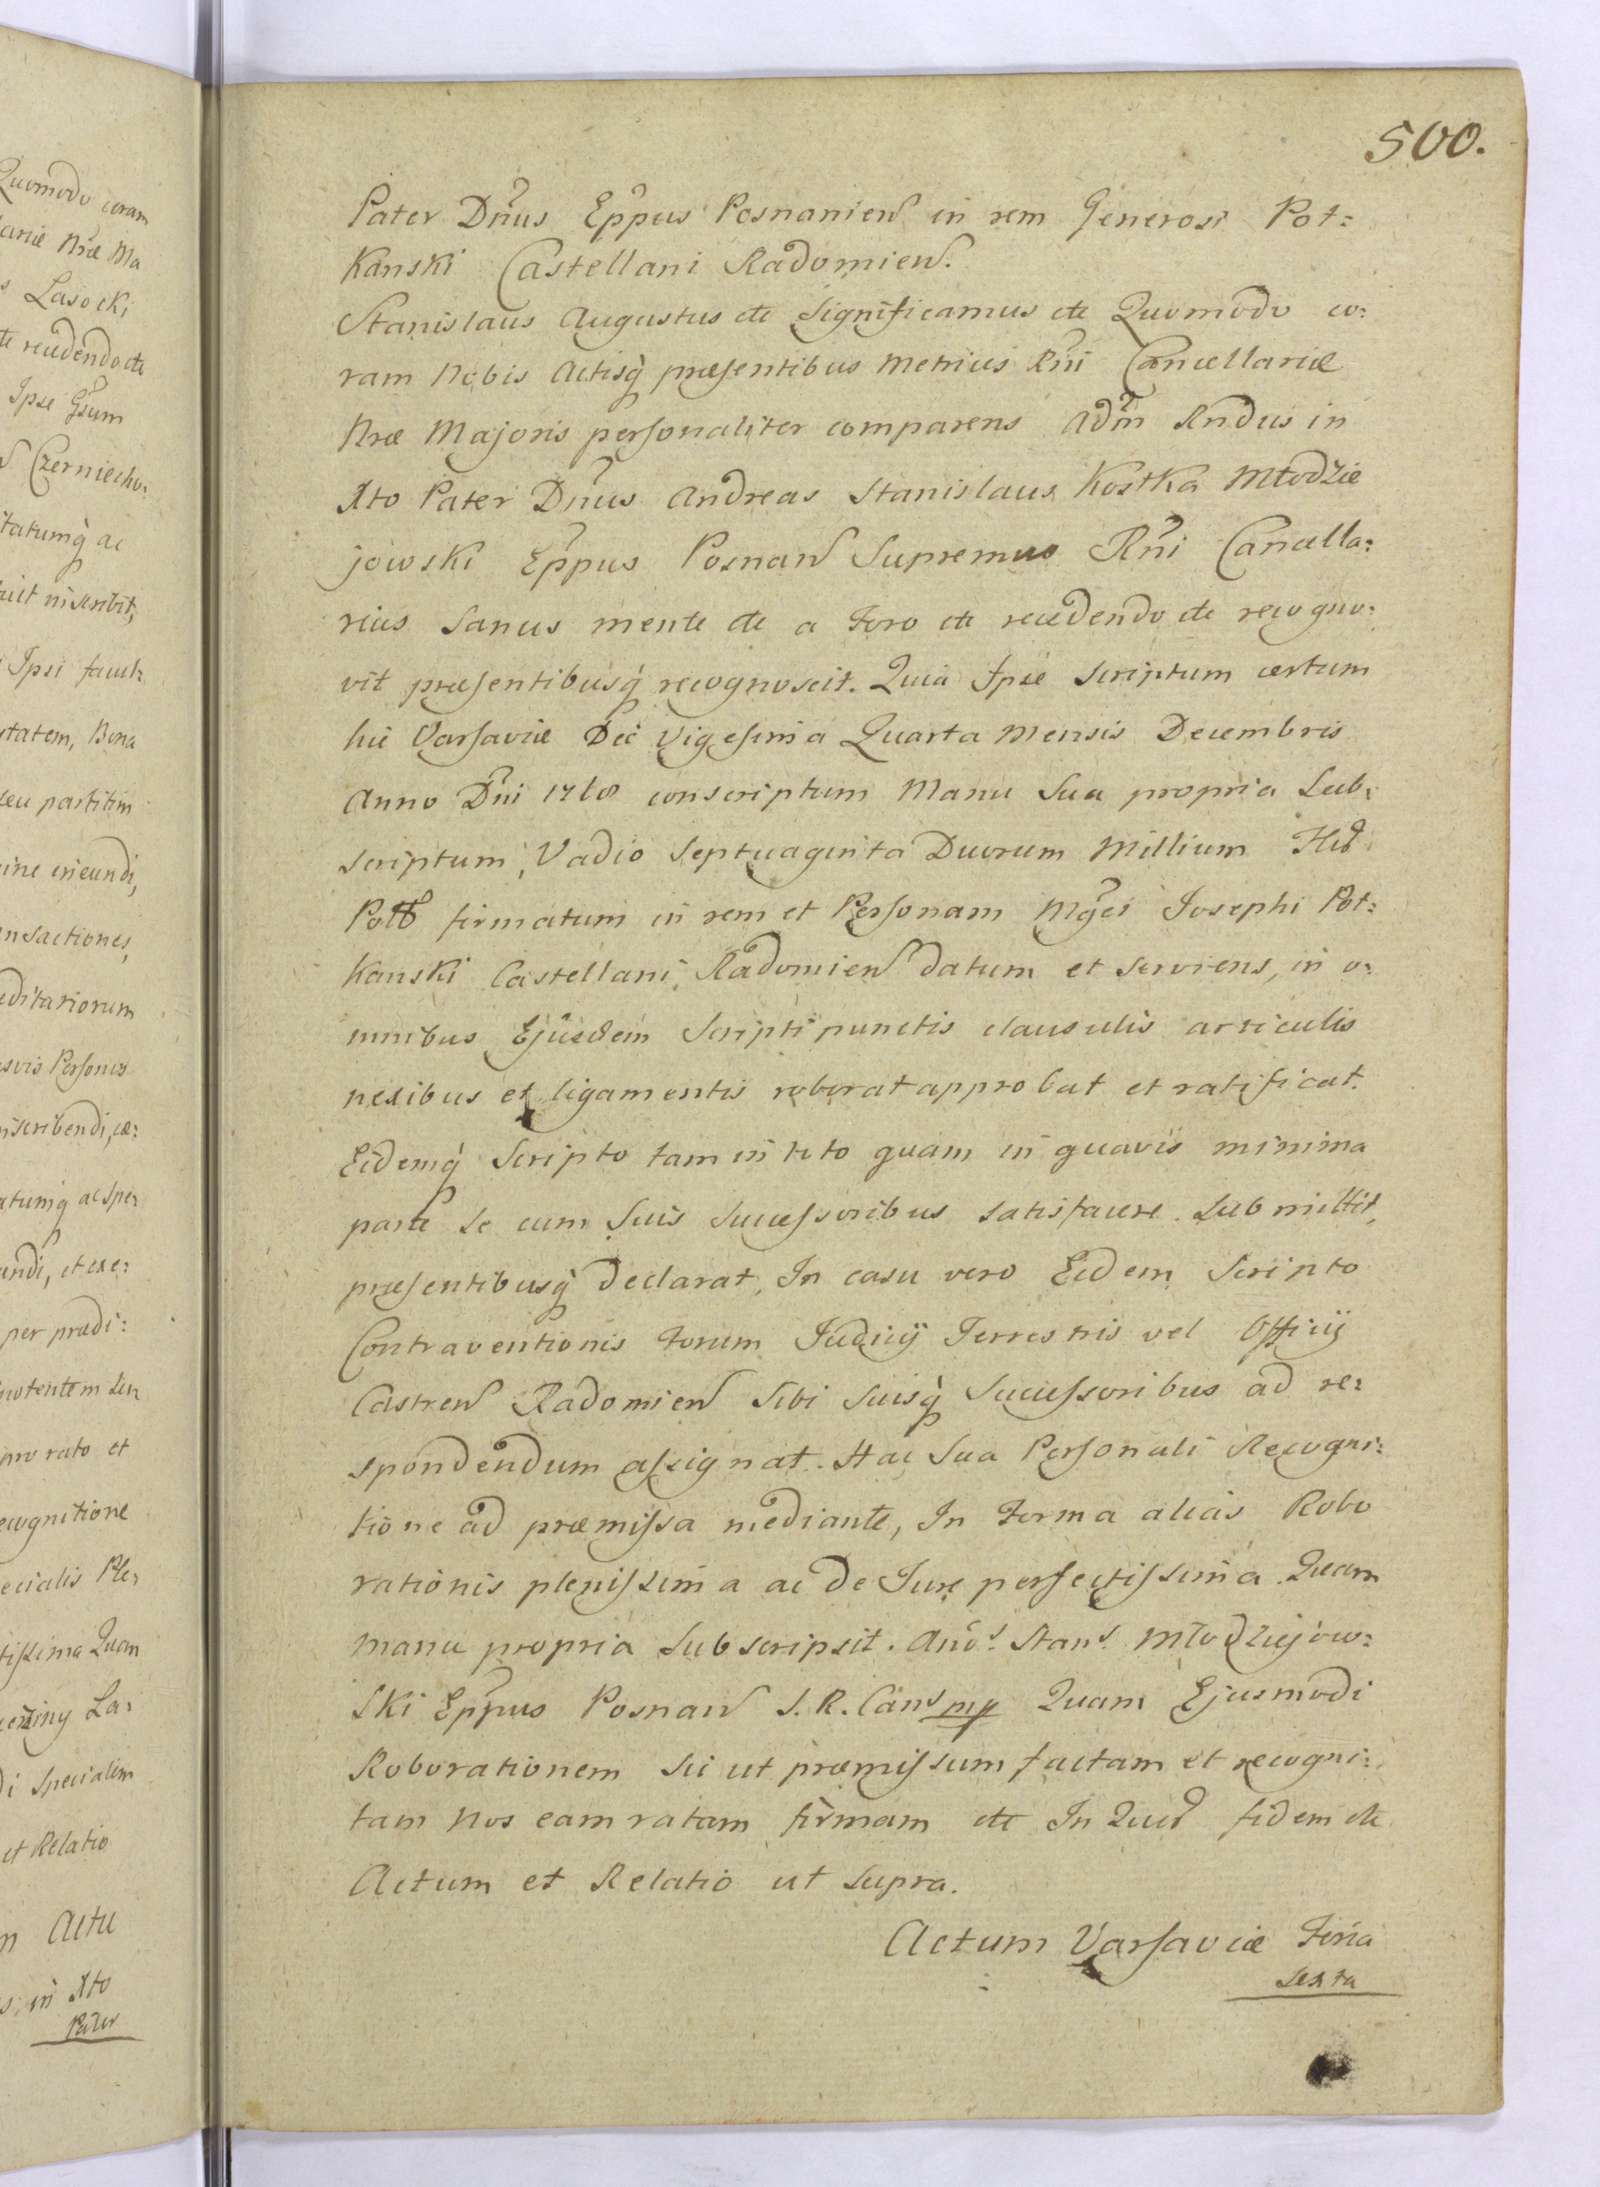 Quomodo coram
Nræ Ma
Lasocki
recedendo etc
Ipse Gsum
Czerniecho:
ac
inscribit,
Ipsi facul:
Bona
seu partitim
ineundi,
Personis
per prædi:
pro rato et
Specialem
et Relatio
Actu
in Xto
Pater
500.
Pater Dn̄us Epp̄us Posnanien in rem Generosi Pot:
kanski Castellani Radomien.
Stanislaus Augustus etc Significamus etc Quomodo co:
ram Nobis Actisq̀ præsentibus Metrices Rn̄i Cancellariæ
Nræ Majoris personaliter comparens Adm̄ Rndus in
Xto Pater Dn̄us Andreas Stanislaus Kostka Młodzie
jowski Epp̄us Posnan Supremus Rn̄i Cancella:
rius Sanus mente etc a Foro etc recedendo etc recogno:
vit præsentibusq̀ recognoscit. Quia Ipse Scriptum certum
hic Varsaviæ Die Vigesima Quarta Mensis Decembris
Anno Dn̄i 1768 conscriptum Manu Sua propria Sub:
scriptum, Vadio Septuaginta Duorum Millium
firmatum in rem et Personam Mgci Josephi Pot:
kanski Castellani Radomien datum et serviens, in o:
mnibus Ejusdem Scripti punctis clausulis articulis
nexibus et ligamentis roborat approbat et ratificat.
Eidemq̀ Scripto tam in toto quam in quavis minima
parte se cum Suis Successoribus satisfacere submittit,
præsentibusq̀ Declarat, In casu vero Eidem Scripto
Contraventionis Forum Judicij Terrestris vel Officij
Castren Radomien Sibi Suisq̀ Successoribus ad re:
spondendum assignat. Hac Sua Personali Recogni:
tione ad præmissa mediante, In Forma alias Robo
rationis plenissima ac De Jure perfectissima. Quam
manu propria Subscripsit. Andˢ. Stanˢ. Młodziejow:
ski Epp̄us Posnan S. R. Canˢ mp Quam Ejusmodi
Roborationem sic ut præmissum factam et recogni:
tam Nos eam ratam firmam etc In Quor fidem etc
Actum et Relatio ut supra.
Actum Varsaviæ Feria
Sexta